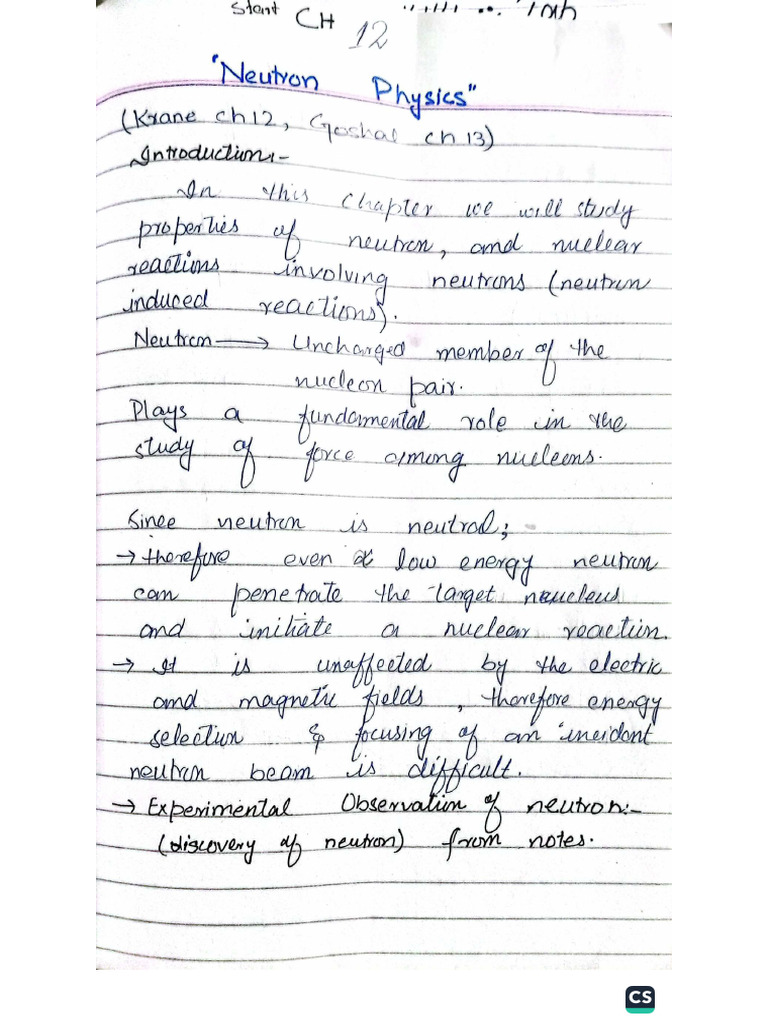 Start CH 12
"Neutron Physics"
(Krane ch12, Goshal ch 13)
Introduction:-
In this chapter we will study
properties of neutron, and nuclear
reactions involving neutrons (neutron
induced reactions).
Neutron → Uncharged member of the
nucleon pair.
Plays a fundamental role in the
study of force among nucleons.
Since neutron is neutral;
→ therefore even low energy neutron
can penetrate the target nucleus
and initiate a nuclear reaction.
→ It is unaffected by the electric
and magnetic fields, therefore energy
selection & focusing of an incident
neutron beam is difficult.
→ Experimental Observation of neutron:-
(discovery of neutron) from notes.
CS